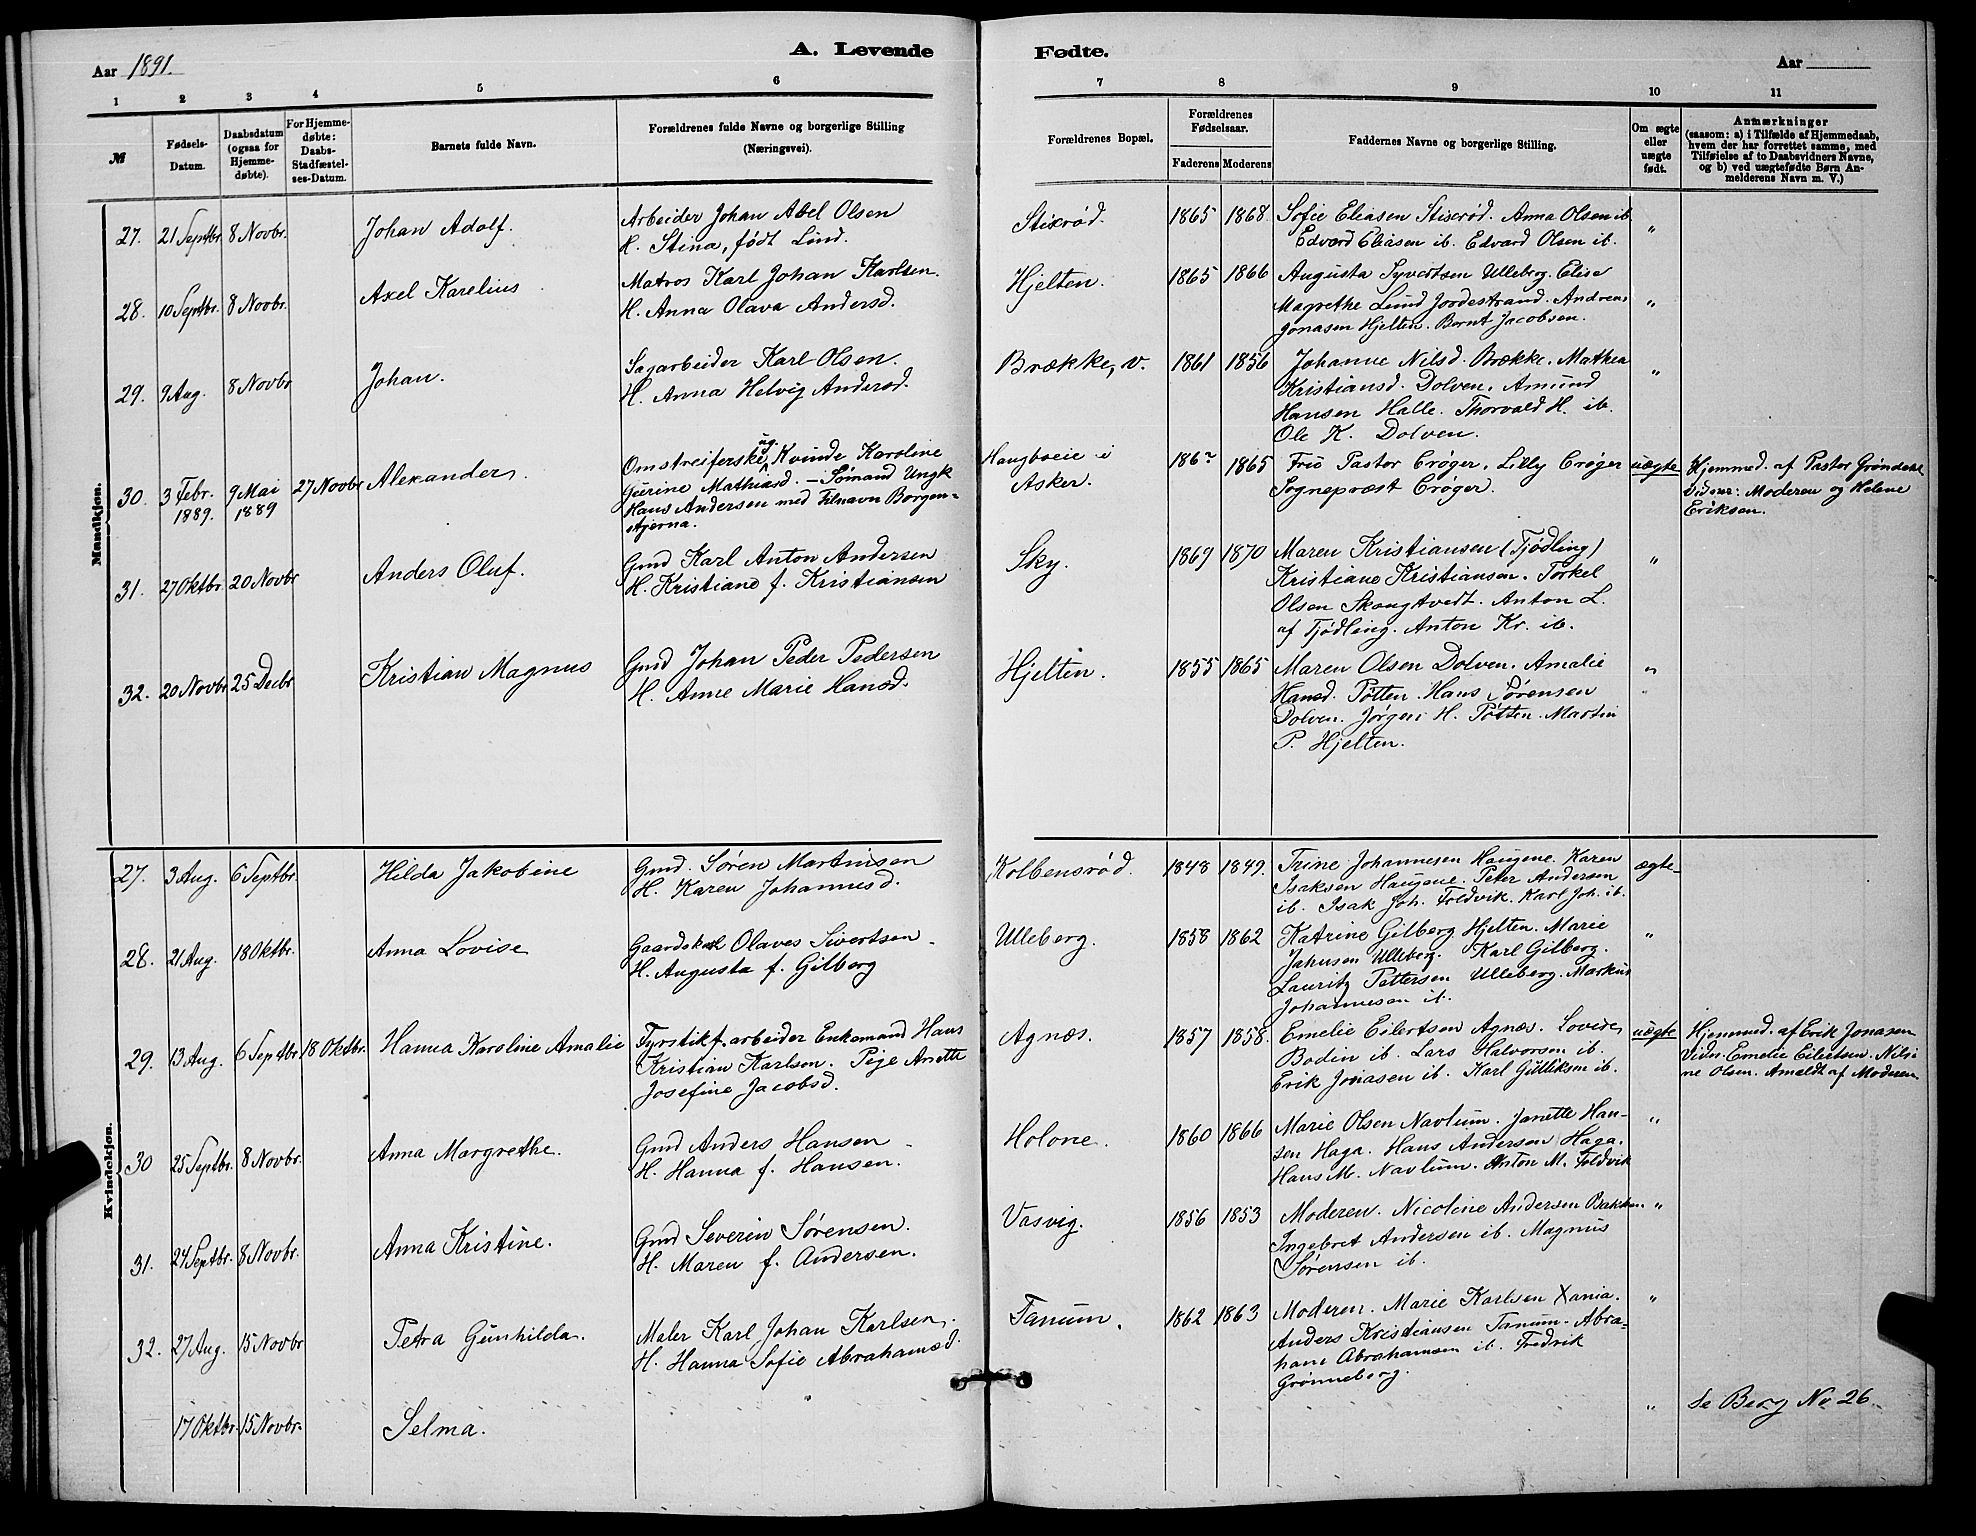 A. Levende Fødte.
Aar 1891.
Aar
1 2 3 4 5 6 7 8 9 10 11
№
Fødsels-Datum.
Daabsdatum (ogsaa for Hjemme-døbte).
For Hjemme-døbte: Daabs-Stadfæstel-ses-Datum.
Barnets fulde Navn.
Forældrenes fulde Navne og borgerlige Stilling
(Næringsvei).
Forældrenes Bopæl.
Forældrenes Fødselsaar.
Faderens Moderens
Faddernes Navne og borgerlige Stilling.
Om ægte eller uægte født.
Anmærkninger
(saasom: a) i Tilfælde af Hjemmedaab,
hvem der har forrettet samme, med
Tilføielse af to Daabsvidners Navne,
og b) ved uægtefødte Børn An-
melderens Navn m. V.)
Mandkjøn.
27. 21 Septbr. 8 Novbr. Johan Adolf. Arbeider Johan Abel Olsen
H. Stina, født Lind.
Stixrød. 1865 1868. Sofie Eliasen Stixrød. Anna Olsen ib.
Edvard Eliasen ib. Edvard Olsen ib. "
28. 10 Septbr. 8 Novbr. Axel Karelius Matros Karl Johan Karlsen.
H. Anna Olava Andersd.
Hjelten. 1865 1866 Augusta Syvertsen Ulleberg. Elise
Magrethe Lund Jordestrand. Andreas
Jonasen Hjelten. Bernt Jacobsen. "
29. 9 Aug. 8 Novbr Johan. Sagarbeider Karl Olsen.
H. Anna Helvig Andersd.
Brække, v. 1861 1856 Johanne Nilsd. Brække. Mathea
Kristiansd. Dolven. Amund
Hansen Halle. Thorvald H. ib.
Ole K. Dolven. "
30. 3 Febr. 1889. 9 Mai 1889 27 Novbr Alexander. Omstreiferske, ug. Kvinde Karoline
Gurine Mathiasd. – Sømand Ungk
Hans Andersen med Tilnavn Borgen-
stjerna.
Haugboeie i
Asker. 1865 Fru Pastor Crøger. Lilly Crøger
Sognepræst Crøger. uægte Hjemmed. af Pastor Grøndahl
Vidner: Moderen og Helene
Eriksen.
31. 27 Oktbr. 20 Novbr Anders Oluf. Gmd Karl Anton Andersen
H. Kristiane f. Kristiansen
Sky. 1869 1870 Maren Kristiansen (Tjødling)
Kristiane Kristiansen. Torkel
Olsen Skaugtvedt. Anton L.
af Tjødling. Anton Kr. ib. "
32. 20 Novbr 25 Decbr Kristian Magnus Gmd Johan Peder Pedersen
H. Anne Marie Hansd.
Hjelten. 1855 1865 Maren Olsen Dolven. Amalie
Hansd. Pøtten. Hans Sørensen
Dolven. Jørgen H. Pøtten. Martin
P. Hjelten. "
Kvindekjøn.
27. 3 Aug. 6 Septbr. Hilda Jakobine Gmd. Søren Martinsen
H. Karen Johannesd.
Kolbensrød. 1848 1849. Trine Johannesen Haugene. Karen
Isaksen Haugene. Peter Andersen
ib. Isak Joh. Foldvik. Karl Joh. ib. ægte
28. 21 Aug. 18 Oktbr. Anna Lovise Gaardskarl Olaves Sivertsen
H. Augusta f. Gilberg
Ulleberg. 1858 1862 Katrine Gilberg Hjelten. Marie
Jahnsen Ulleberg. Karl Gilberg.
Lauritz Pettersen Ulleberg. Markus
Johannesen ib. "
29. 13 Aug. 6 Septbr. 18 Oktbr. Hanna Karoline Amalie Fyrstikf.arbeider Enkemand Hans
Kristian Karlsen. Pige Anette
Josefine Jacobsd.
Agnæs. 1857 1858. Emelie Eilertsen Agnæs. Lovise
Bodin ib. Lars Halvorsen ib.
Erik Jonasen ib. Karl Gulliksen ib. uægte Hjemmed. af Erik Jonasen
Vidn. Emelie Eilertsen. Nilsi-
ne Olsen. Anmeldt af Moderen
30 25 Septbr. 8 Novbr. Anna Margrethe. Gmd Anders Hansen
H. Hanna f. Hansen.
Holone. 1860 1866 Marie Olsen Navlum. Janette Han-
sen Haga. Hans Andersen Haga.
Hans M. Navlum. Anton M. Foldvik "
31. 24 Septbr. 8 Novbr. Anna Kristine. Gmd Severin Sørensen.
H. Maren f. Andersen.
Vasvig. 1856 1853 Moderen. Nicoline Andersen Bakken.
Ingebret Andersen ib. Magnus
Sørensen ib. "
32. 27 Aug. 15 Novbr Petra Gunhilda. Maler Karl Johan Karlsen.
H. Hanna Sofie Abrahamsd.
Tanum. 1862 1863 Moderen. Marie Karlsen Xania.
Anders Kristiansen Tanum. Abra-
ham Abrahamsen ib. Fredrik
Grønneberg. "
17 Oktbr. 15 Novbr. Selma. " " Se Berg No 26.